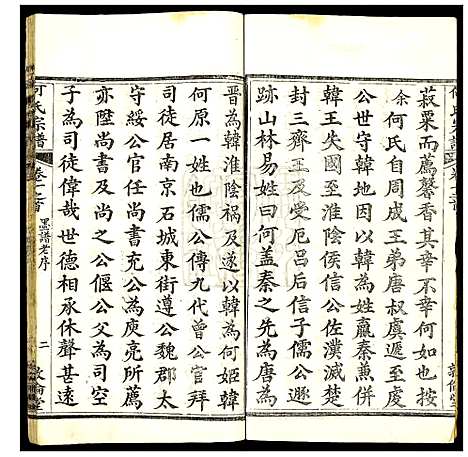 菽粟而薦馨香其幸不幸何如也
余何氏自周成王弟唐叔虞遞至
公世守韓地因以韓為姓嬴秦兼併
韓王失國至淮陰侯信公佐漢滅楚
封三齊王及受戹呂后信子儒公遯
跡山林易姓曰何蓋秦之先為唐
晉為韓淮陰禍及遂以韓為何姬韓
何原一姓也儒公傳九代曾公官拜
司徒居南京石城東街遵公魏郡太
守綏公官尚書充公為庾亮所薦
亦陞尚書及尚之公偃公父為司空
子為司徒偉哉世德相承休聲甚遠
何氏宗譜 卷之首 墨譜老序 二 敦倫堂